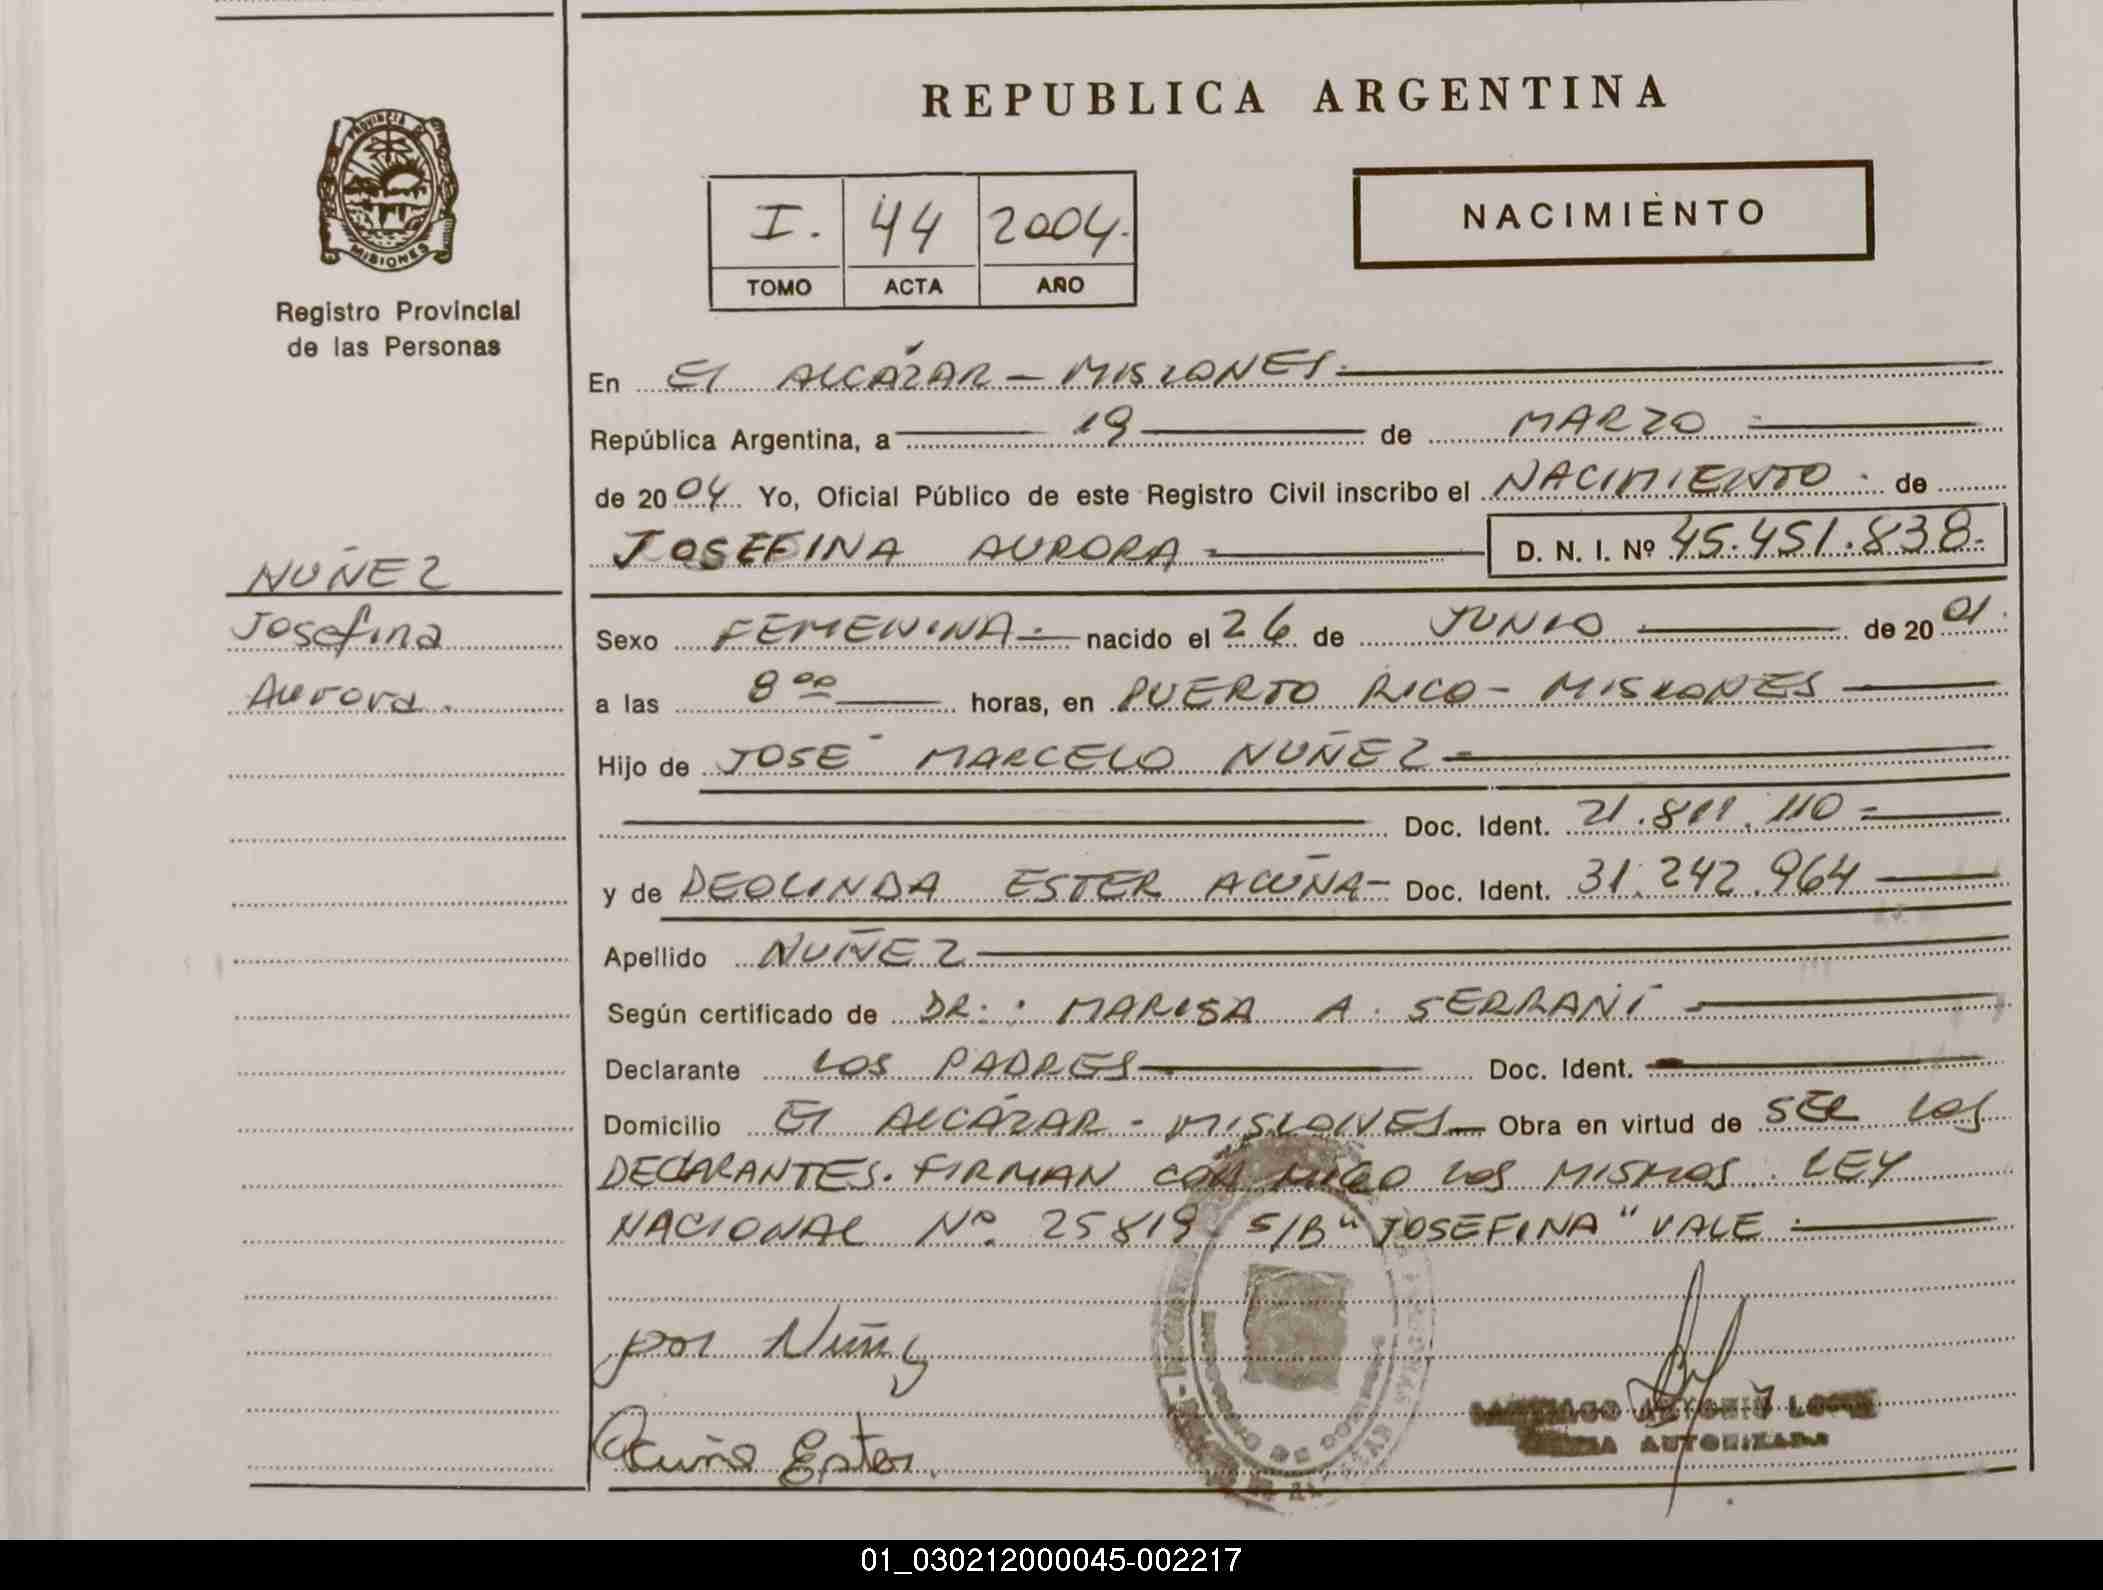 REPUBLICA ARGENTINA
PROVINCIA DE
MISIONES
Registro Provincial
de las Personas
I. 44 2004.
TOMO ACTA AÑO
NACIMIENTO
En El ALCÁZAR - MISIONES.
República Argentina, a 19 de MARZO
de 2004 Yo, Oficial Público de este Registro Civil inscribo el NACIMIENTO de
JOSEFINA AURORA D. N. I. Nº 45.451.838.
NUÑEZ
Josefina
Aurora.
Sexo FEMENINA. nacido el 26 de JUNIO de 2001.
a las 8 00 horas, en PUERTO RICO - MISIONES
Hijo de JOSÉ MARCELO NUÑEZ
Doc. Ident. 21.811.110
y de DEOLINDA ESTER ACUÑA - Doc. Ident. 31.242.964
Apellido NUÑEZ
Según certificado de DR: MARISA A. SERRANÍ
Declarante LOS PADRES Doc. Ident.
Domicilio El ALCÁZAR - MISIONES Obra en virtud de SER LOS
DECLARANTES. FIRMAN CON MIGO LOS MISMOS. LEY
NACIONAL Nº 25819 S/B "JOSEFINA" VALE
por Nuñez
Acuña Ester.
AUTORIZADA
01_030212000045-002217